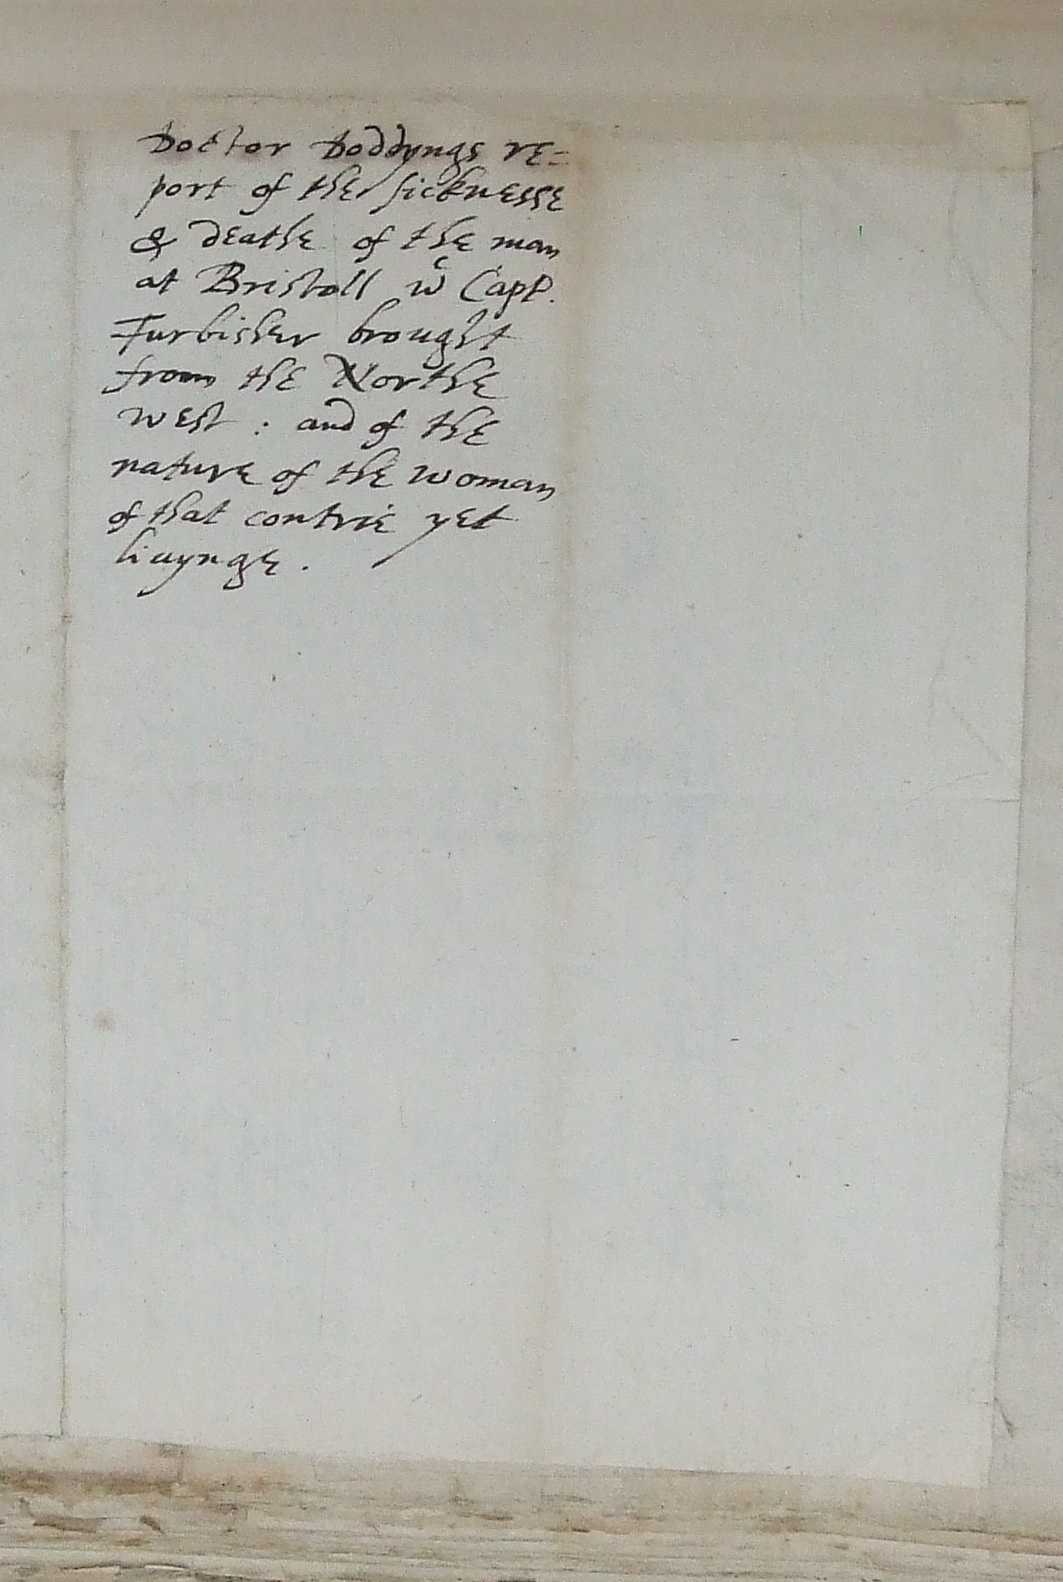 Doctor Doddyngs re=
port of the sicknesse
& deathe of the man
at Bristoll wᶜ Capt.
Furbisher brought
from the Northe
west : and of the
nature of the woman
of that contrie yet
liuynge .